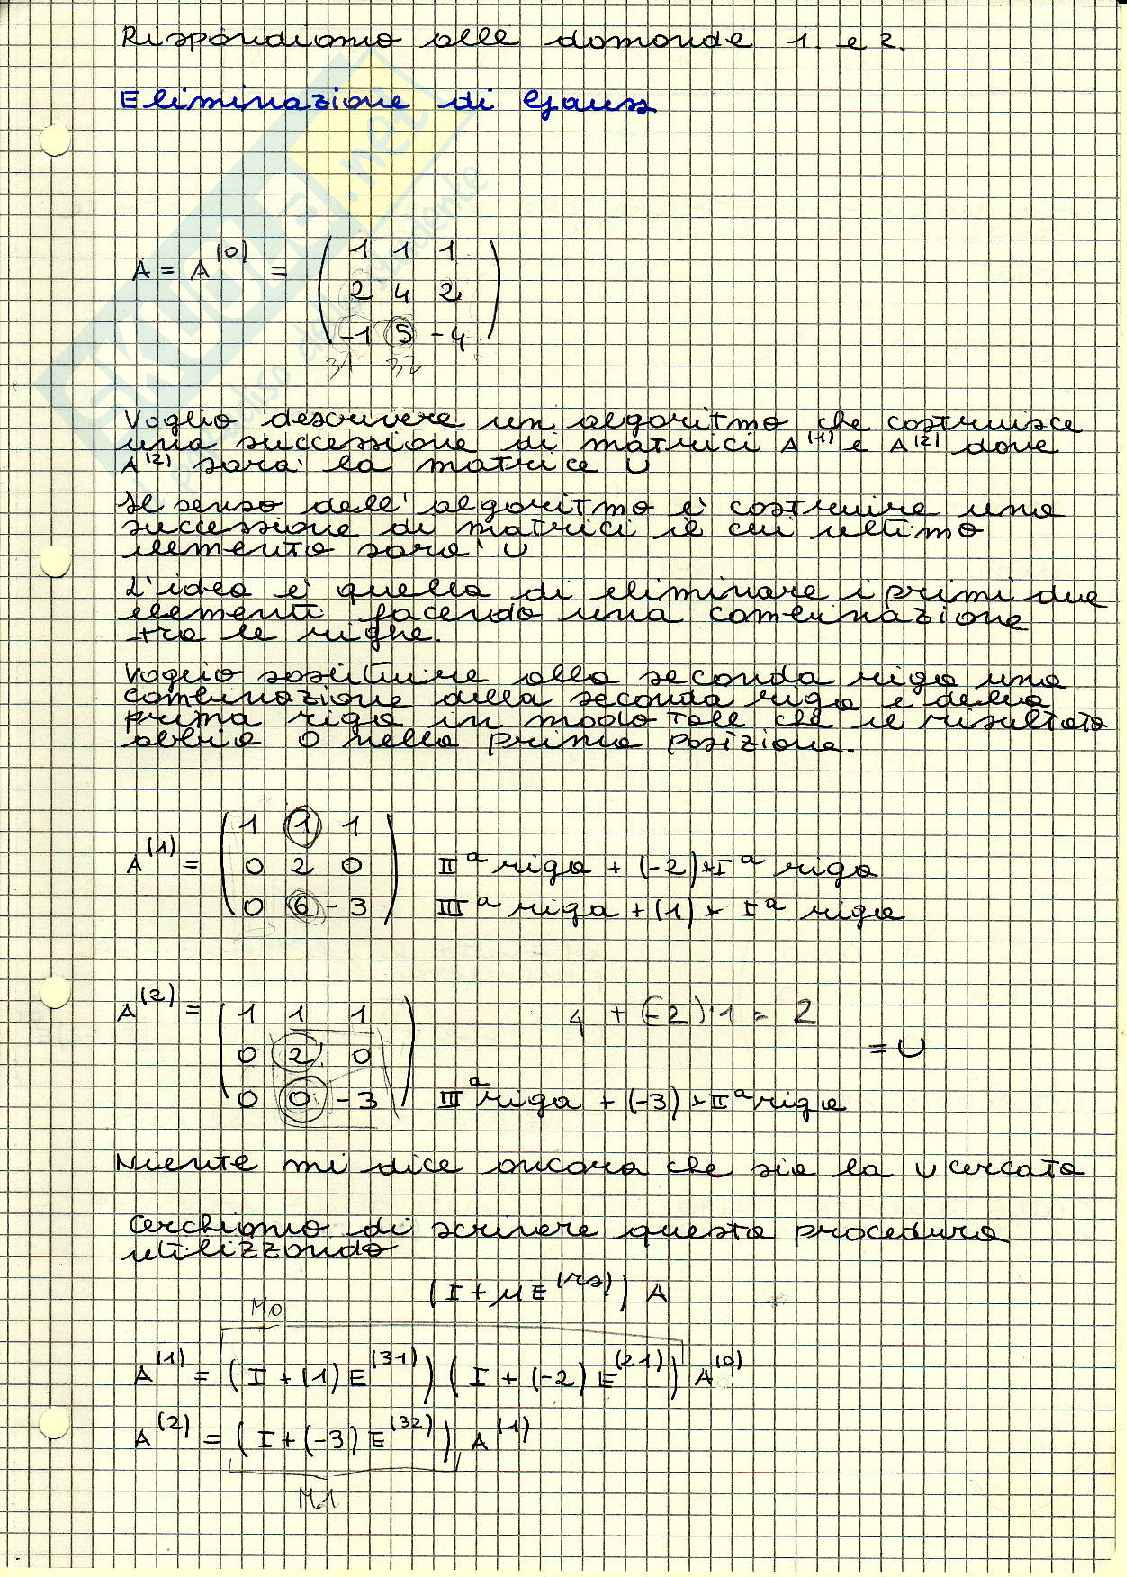 Rispondiamo alle domande 1. e 2.
Eliminazione di Gauss
A = A^(0) = ( 1 1 1
2 4 2
-1 5 -4 )
31 32
Voglio descrivere un algoritmo che costruisce
una successione di matrici A^(1) e A^(2) dove
A^(2) sara' la matrice U
Il senso dell' algoritmo e' costruire una
successione di matrici il cui ultimo
elemento sara' U
L'idea e' quella di eliminare i primi due
elementi facendo una combinazione
tra le righe.
Voglio sostituire alla seconda riga una
combinazione della seconda riga e della
prima riga in modo tale che il risultato
abbia 0 nella prima posizione.
A^(1) = ( 1 1 1
0 2 0 ) II^a riga + (-2) * I^a riga
0 6 -3 III^a riga + (1) * I^a riga
A^(2) = ( 1 1 1 4 + (-2)·1 = 2
0 2 0 = U
0 0 -3 ) III^a riga + (-3) * II^a riga
Niente mi dice ancora che sia la U cercata
Cerchiamo di scrivere questa procedura
utilizzando
(I + μE^(rs)) A
M0
A^(1) = (I + (1) E^(31)) (I + (-2) E^(21)) A^(0)
A^(2) = (I + (-3) E^(32)) A^(1)
M1
SKUOLA.net